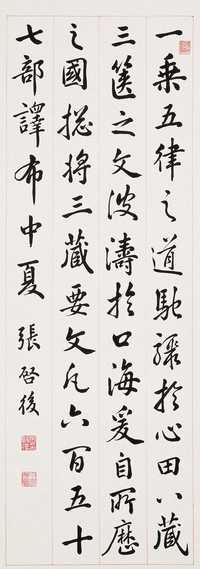 一乘五律之道馳驟於心田八藏
三篋之文波濤於口海爰自所歷
之國捴將三藏要文凡六百五十
七部譯布中夏
張啓後